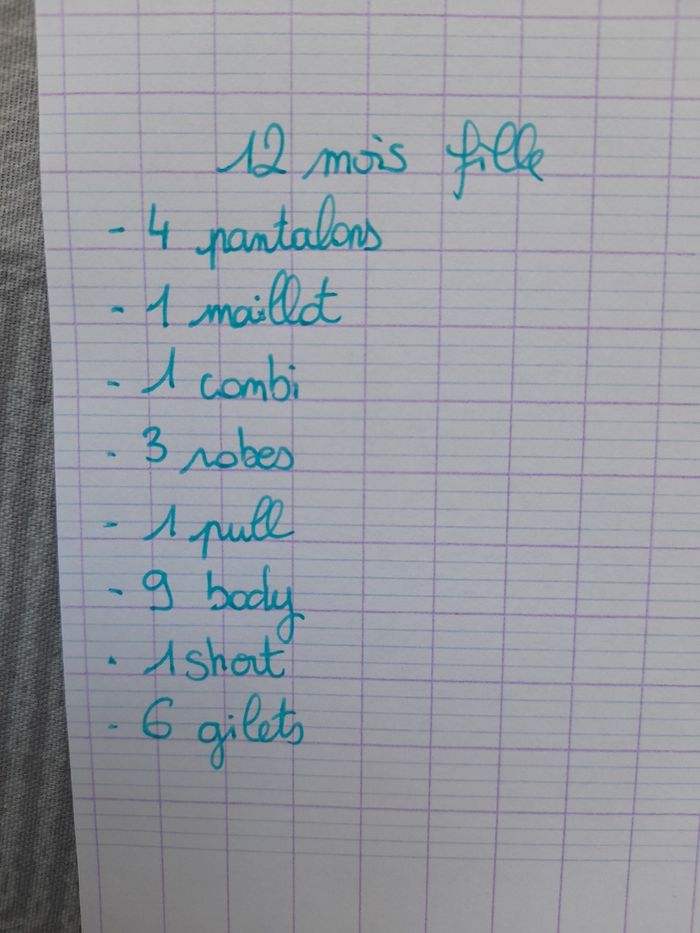 12 mois fille
- 4 pantalons
- 1 maillot
- 1 combi
- 3 robes
- 1 pull
- 9 body
- 1 short
- 6 gilets